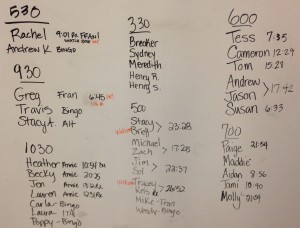 530
Rachel 9:01 PR FRAN!
Andrew K BINGO
930
Greg Fran 6:45
Travis Bingo
Stacy A. Alt
1030
Heather Annie
Becky Annie
Jen Annie
Lauren Annie
Carla - Bingo
Laura
Poppy - Bingo
330
Breaker
Sydney
Meredyth
Henry R.
Henry S.
500
Stacy
Brett > 23:28
Michael
Zach > 17:28
Jim
Sof > 22:37
Tracey
Kels > 26:52
Mike - Fran
Wendy - Bingo
600
Tess 7:35
Cameron 12:29
Tom 15:28
Andrew
Jason > 17:42
Susan 6:33
700
Paige 21:54
Maddie
Aidan 8:56
Tami 10:40
Molly 21:09